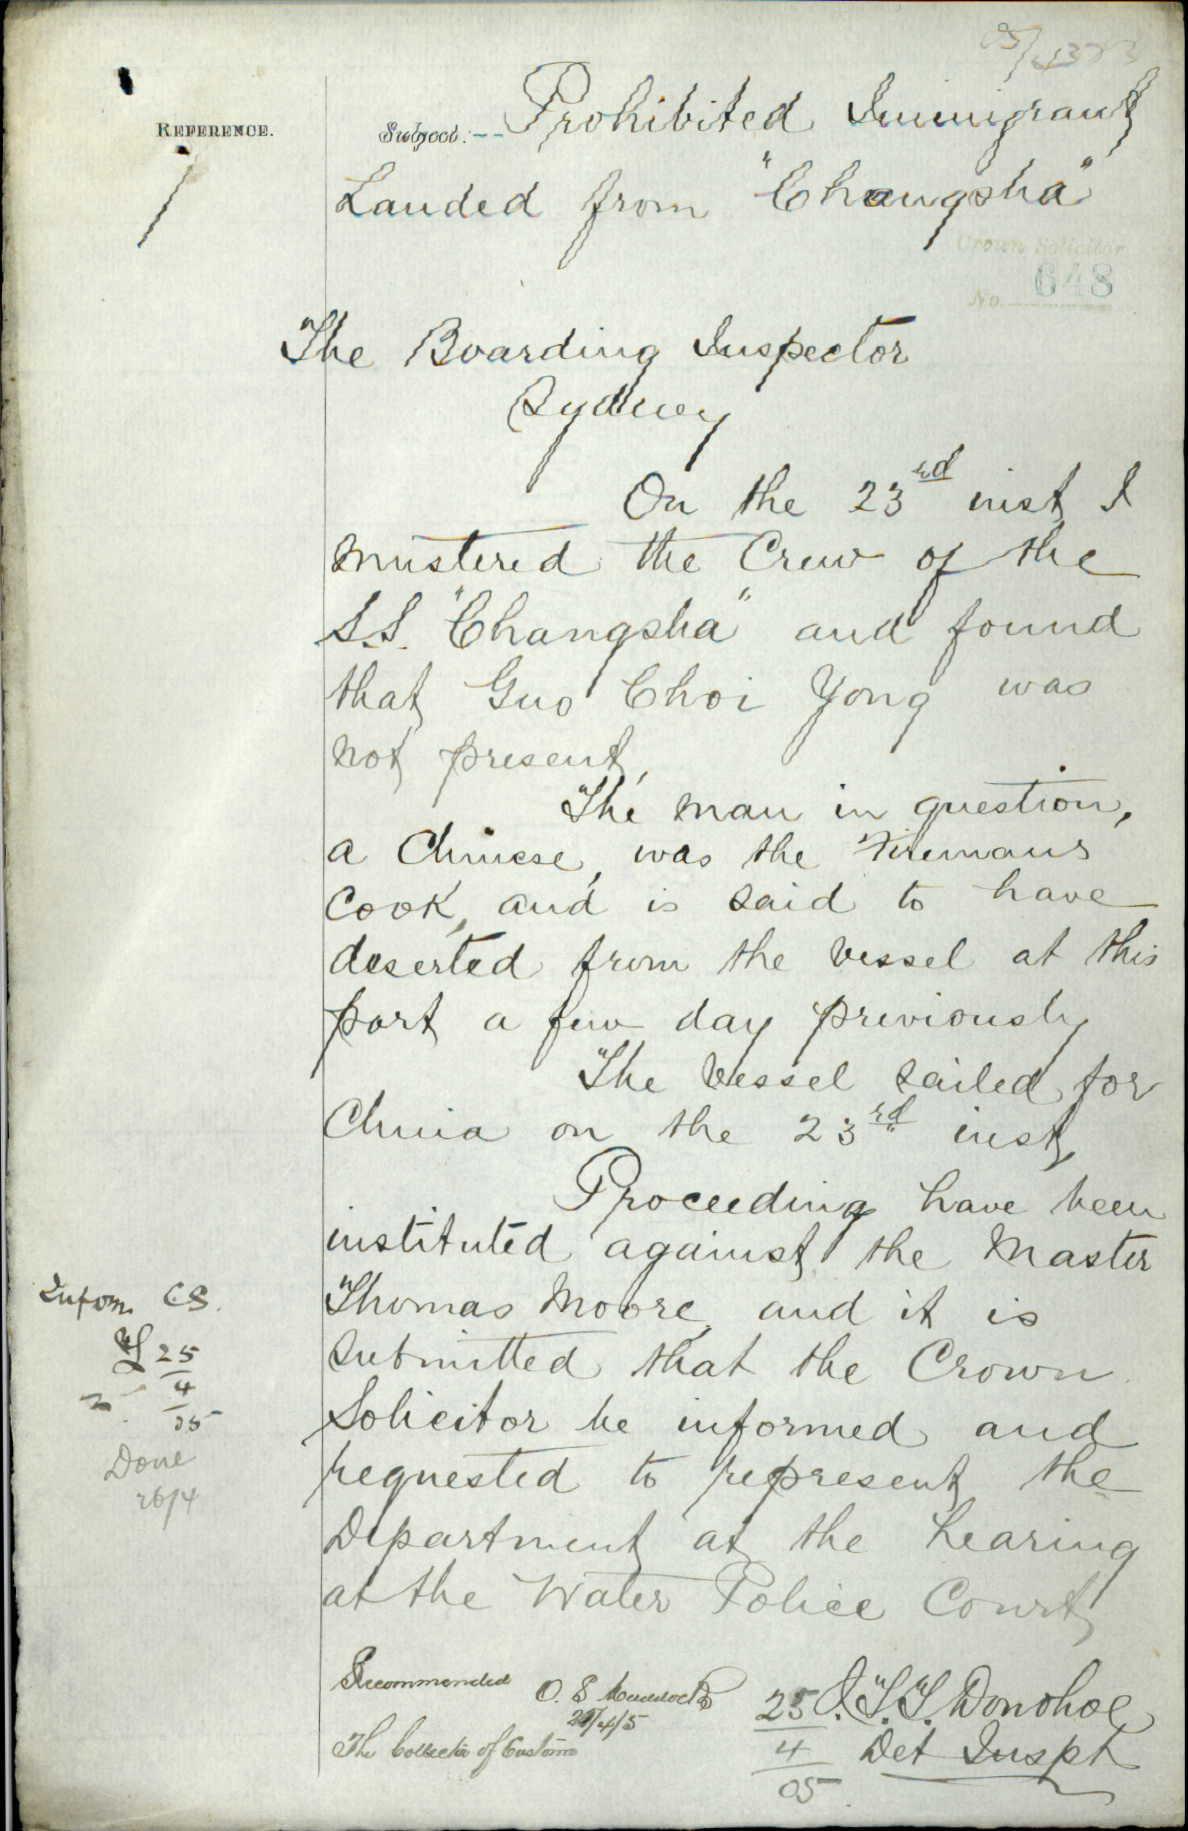 05/4373
REFERENCE.
Subject:-- Prohibited Immigrant
Landed from "Changsha"
Crown Solicitor
No. 648
The Boarding Inspector
Sydney
On the 23rd inst I
mustered the Crew of the
S.S. "Changsha" and found
that Guo Choi Yong was
not present,
The man in question,
a Chinese, was the Firemans
Cook, and is said to have
deserted from the vessel at this
port a few day previously
The vessel sailed for
China on the 23rd inst,
Proceeding have been
instituted against the Master
Thomas Moore, and it is
submitted that the Crown
Solicitor be informed and
requested to represent the
Department at the hearing
at the Water Police Court
Inform C.S.
25
4
05
Done
26/4
Recommended O. S.
/4/5
The Collector of Customs
25 J.T.T. Donohoe
4 Det Inspt
05